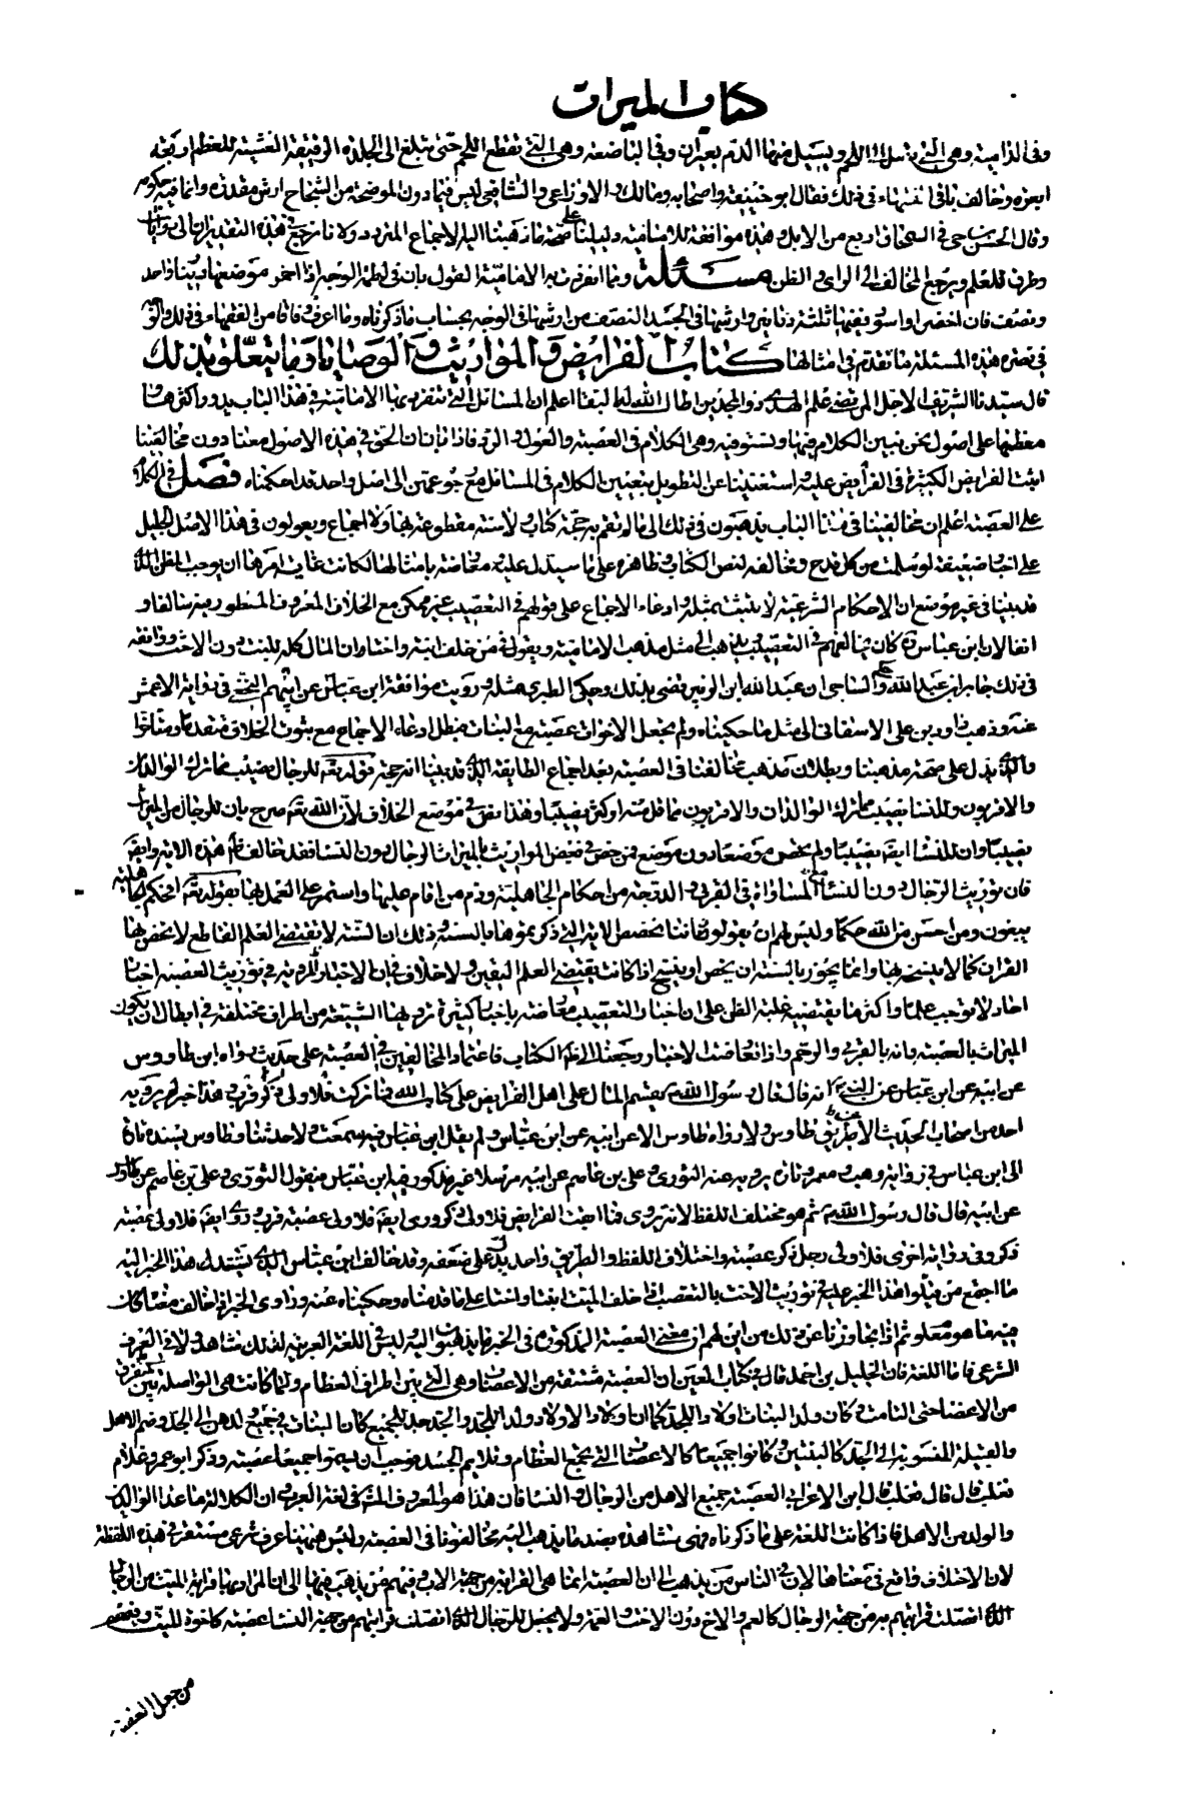 كتاب الميراث
وفى الدامية وهى التى تصل الى اللحم ويسيل منها الدم بعيران وفى الباضعة وهى التى تقطع اللحم حتى تبلغ الى الجلدة الرقيقة المغشية للعظم اربعة
ابعرة وخالف باقى الفقهاء فى ذلك فقال ابو حنيفة واصحابه ومالك والاوزاعى والشافعى ليس فيما دون الموضحة من الشجاج ارش مقدر وانما فيه حكومة
وقال الحسن بن حى فى السمحاق اربع من الابل هذه موافقة للامامية دليلنا على صحة ما ذهبنا اليه الاجماع المتردد ولانا نرجع فى هذه التقديرات الى روايات
وطرق للعلم ويرجع المخالف الى الراى والظن مسئلة ومما انفردت به الامامية القول بان فى لطمة الوجه اذا احمر موضعها دينارا واحدا
ونصف فان اخضر او اسود ففيها ثلثة دنانير وارشها فى الجسد النصف من ارشها فى الوجه بحساب ما ذكرناه وما اعرف وفاقا من الفقهاء فى ذلك والوجه
فى نصرة هذه المسئلة ما تقدم فى امثالها كتاب الفرايض والمواريث والوصايا وما يتعلق بذلك
قال سيدنا الشريف الاجل المرتضى علم الهدى ذو المجدين اطال الله بقاءه اعلم ان المسائل التى تنفرد بها الامامية فى هذا الباب يدور اكثرها و
معظمها على اصول نحن نبين الكلام فيها ونستوفيه وهى الكلام فى العصبة والعول والرد فاذا بان ان الحق فى هذه الاصول معنا دون مخالفينا
ابتنت الفرايض الكثيرة فى الفرايض عليه واستغنينا عن التطويل بتعيين الكلام فى المسائل مع رجوعهن الى اصل واحد قد احكمناه فصل فى الكلام
على العصبة اعلم ان مخالفينا فى هذا الباب يذهبون فى ذلك الى ما لم تقم به حجة كتاب ولا سنة مقطوع بها ولا اجماع ويعولون فى هذا الاصل الجليل
على اخبار ضعيفة لو سلمت من كل قدح ومخالفة لنص الكتاب وظاهره على ما سيدل عليه ومعارضة بامثالها لكانت غاية امرها ان يوجب الظن الذى
قد بينا فى غير موضع ان الاحكام الشرعية لا يثبت بمثله وادعاء الاجماع على قولهم فى التعصيب غير ممكن مع الخلاف المعروف المسطور فيه سالفا و
انفا لان ابن عباس ره كان يخالفهم فى التعصيب ويذهب الى مثل مذهب الامامية ويقول فمن خلف ابنة واختا ان المال كله للبنت دون الاخت ووافقه
فى ذلك جابر ابن عبد الله والساجى ان عبد الله ابن الزبير قضى بذلك وحكى الطبرى مثله ورويت موافقة ابن عباس عن ابراهيم النخعى فى رواية الاعمش
عنه وذهب داود بن على الاسفهانى الى مثل ما حكيناه ولم يجعل الاخوات عصبة مع البنات فبطل ادعاء الاجماع مع ثبوت الخلاف متقدما ومتاخرا
والذى يدل على صحة مذهبنا وبطلان مذهب مخالفنا فى العصبة بعد اجماع الطايفة الذى قد بينا انه حجة قوله تعالى للرجال نصيب مما ترك الوالدان
والاقربون وللنساء نصيب مما ترك الوالدان والاقربون مما قل منه او كثر نصيبا وهذا نص فى موضع الخلاف لان الله تعالى صرح بان للرجال من الميراث
نصيبا وان للنساء ايضا نصيبا ولم يخص موضعا دون موضع فمن خص فى بعض المواريث بالميراث الرجال دون النساء فقد خالف ظاهر هذه الاية وايضا
فان توريث الرجال دون النساء مع المساواة فى القربى والدرجة من احكام الجاهلية وذم من اقام عليها واستمر على العمل بها بقوله تعالى افحكم الجاهلية
يبغون ومن احسن من الله حكما وليس لهم ان يقولوا اننا نخصص الاية التى ذكرتموها بالسنة وذلك ان السنة لا تقتضى العلم القاطع لا نخص بها
القران كما لا ننسخ بها وانما يجوز بالسنة ان يخص او ينسخ اذا كانت تقتضى العلم اليقين ولا خلاف فى ان الاخبار المروية فى توريث العصبة اخبار
احاد لا توجب علما واكثر ما يقتضيه غلبة الظن على ان اخبار التعصيب معارضة باخبار كثيرة ترويها الشيعة من اطراف مختلفة فى ابطال ان يكون
الميراث بالعصبة وانه بالقربى والرحم واذا تعارضت الاخبار رجعنا الى ظاهر الكتاب فاعتماد المخالفين فى العصبة على حديث رواه ابن طاووس
عن ابيه عن ابن عباس عن النبى ص انه قال قال رسول الله ص يقسم المال على اهل الفرايض على كتاب الله فما تركت فلاولى ذكر قرب وهذا خبر لم يروه
احد من اصحاب الحديث الا من طريق طاووس ولا رواه طاوس الا عن ابيه عن ابن عباس ولم يقل ابن عباس فيه سمعت ولا حدثنا وطاوس يسنده تارة
الى ابن عباس فى رواية وهب ومعمر وتارة يرويه عنه الثورى وعلى بن عاصم عن ابيه مرسلا غير مذكور فيه ابن عباس فيقول الثورى وعلى بن عاصم عن طاوس
عن ابيه قال قال رسول الله ص ثم هو مختلف اللفظ لانه يروى فما ابقت الفرايض فلاولى ذكر وروى ايضا فلاولى عصبة قرب وروى ايضا فلاولى عصبة
ذكر وفى رواية اخرى فلاولى رجل ذكر عصبة واختلاف اللفظ والطريق واحد يدل على ضعفه وقد خالف ابن عباس الذى يسند هذا الخبر اليه
ما اجمع من قبلوا هذا الخبر عليه فى توريث الاخت بالتعصيب اذا خلف الميت ابنتا واختا على ما قدمناه وحكيناه عنه وراوى الخبر اذا خالف معناه كان
فيه ما هو معلوم ثم اذا تجاوزنا عن ذلك من اين لهم ان معنى العصبة المذكورة فى الخبر ما يذهبون اليه وليس فى اللغة العربية لذلك شاهد ولا فى العرف
الشرعى فاما اللغة فان الخليل بن احمد قال فى كتاب العين ان العصبة مشتقة من الاعصاب وهى التى بين اطراف العظام ولما كانت هى الواصلة بين المتفرق
من الاعضاء حتى التامت وكان ولد البنات اولادا للجد كما ان اولاد الاولاد ولد للجد والجد جد للجميع كان البنات فى جميع لدهن الى الجد وضم الاهل
والقبيلة المنسوبة الى الجد كالبنين وكانوا جميعا كالاعصاب التى تجمع العظام وتلايم الجسد فوجب ان يسموا جميعا عصبة وذكر ابو عمرو غلام
ثعلب قال قال ثعلب قال ابن الاعرابى العصبة جميع الاهل من الرجال والنساء فان هذا هو المعروف المشهور فى لغة العرب وان الكلالة ما عدا الوالدين
والولد من الاهل فاذا كانت اللغة على ما ذكرناه فهى شاهدة بضد ما يذهب اليه مخالفونا فى العصبة وليس ههنا عرف شرعى مستقر فى هذه اللفظة
لان الاختلاف واقع فى معناها لان فى الناس من يذهب الى ان العصبة انما هى القرابة من جهة الاب وفيهم من يذهب فيها الى ان المراد بها قرابة الميت من الرجال
الذى اتصلت قرابتهم به من جهة الرجال كالعم والاخ دون الاخت والعمة ولا يجعل للرجال الذى اتصلت قرابتهم من جهة النساء عصبة كاخوة للميت وفيهم
من جعل العصبة